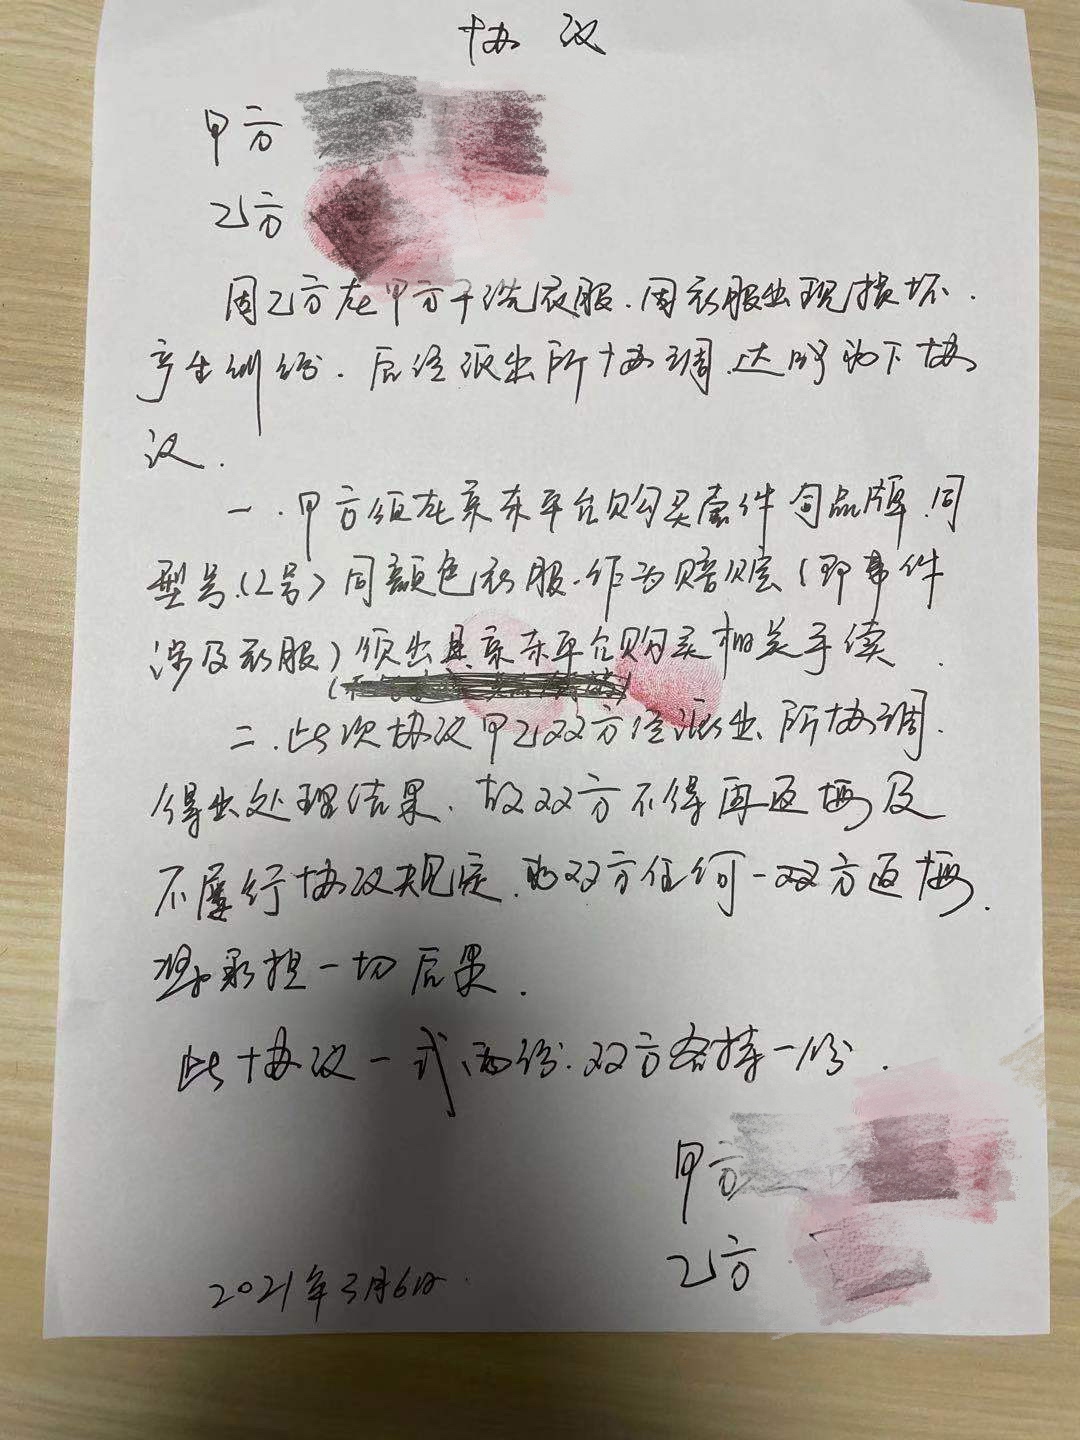 协议
甲方
乙方
因乙方在甲方干洗衣服.因衣服出现损坏.
产生纠纷.后经派出所协调.达成如下协
议.
一.甲方须在京东平台购买壹件同品牌.同
型号.(L号)同颜色衣服.作为赔偿(即事件
涉及衣服)须出具京东平台购买相关手续.
二.此次协议甲乙双方经派出所协调.
得出处理结果.故双方不得再返悔及
不履行协议规定.如双方任何一双方返悔.
承担一切后果.
此协议一式两份.双方各持一份.
甲方
乙方
2021年3月6日.